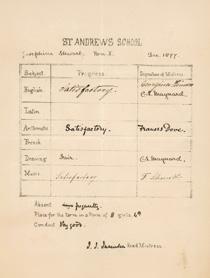 ST ANDREWS SCHOOL
Josephine Stewart, Form V. Dec. 1877.
Subject. Progress. Signature of Mistress.
English. Satisfactory. C. A. Maynard.
Latin
Arithmetic Satisfactory. Frances Dove.
French
Drawing Fair. C. A. Maynard.
Music Satisfactory F.
Absent frequently.
Place for the term in a Form of 8 girls, 4th
Conduct Very good.
Head Mistress.